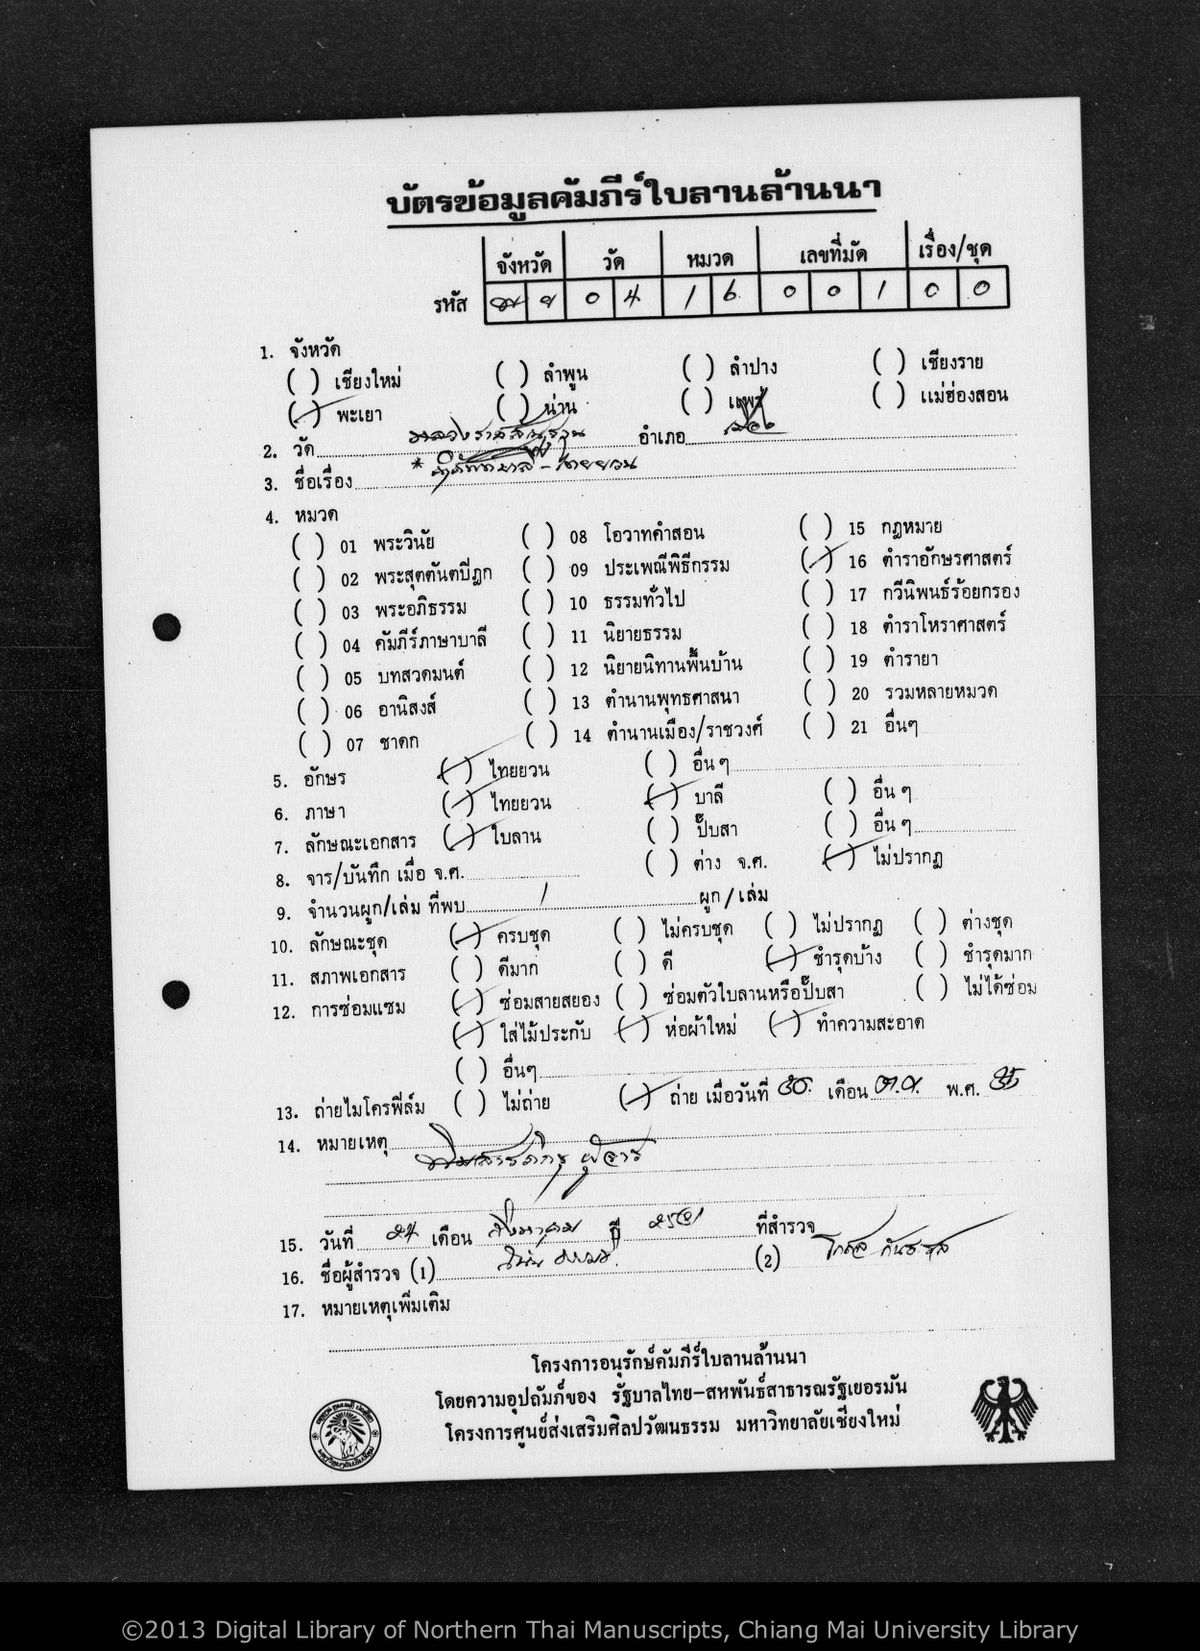 บัตรข้อมูลคัมภีร์ใบลานล้านนา
จังหวัด วัด หมวด เลขที่มัด เรื่อง/ชุด
รหัส พ ย 0 4 1 6 0 0 1 0 0
1. จังหวัด
( ) เชียงใหม่ ( ) ลำพูน ( ) ลำปาง ( ) เชียงราย
(/) พะเยา ( ) น่าน ( ) แพร่ ( ) แม่ฮ่องสอน
2. วัด หลวงราชสัณฐาน อำเภอ เมือง
3. ชื่อเรื่อง - ไทยยวน
4. หมวด
( ) 01 พระวินัย ( ) 08 โอวาทคำสอน ( ) 15 กฎหมาย
( ) 02 พระสุตตันตปิฎก ( ) 09 ประเพณีพิธีกรรม (/) 16 ตำราอักษรศาสตร์
( ) 03 พระอภิธรรม ( ) 10 ธรรมทั่วไป ( ) 17 กวีนิพนธ์ร้อยกรอง
( ) 04 คัมภีร์ภาษาบาลี ( ) 11 นิยายธรรม ( ) 18 ตำราโหราศาสตร์
( ) 05 บทสวดมนต์ ( ) 12 นิยายนิทานพื้นบ้าน ( ) 19 ตำรายา
( ) 06 อานิสงส์ ( ) 13 ตำนานพุทธศาสนา ( ) 20 รวมหลายหมวด
( ) 07 ชาดก ( ) 14 ตำนานเมือง/ราชวงศ์ ( ) 21 อื่นๆ
5. อักษร (/) ไทยยวน ( ) อื่น ๆ
6. ภาษา (/) ไทยยวน (/) บาลี ( ) อื่น ๆ
7. ลักษณะเอกสาร (/) ใบลาน ( ) ปั๊บสา ( ) อื่น ๆ
8. จาร/บันทึก เมื่อ จ.ศ. ( ) ต่าง จ.ศ. (/) ไม่ปรากฏ
9. จำนวนผูก/เล่ม ที่พบ 1 ผูก/เล่ม
10. ลักษณะชุด (/) ครบชุด ( ) ไม่ครบชุด ( ) ไม่ปรากฏ ( ) ต่างชุด
11. สภาพเอกสาร ( ) ดีมาก ( ) ดี (/) ชำรุดบ้าง ( ) ชำรุดมาก
12. การซ่อมแซม (/) ซ่อมสายสยอง ( ) ซ่อมตัวใบลานหรือปั๊บสา ( ) ไม่ได้ซ่อม
(/) ใส่ไม้ประกับ (/) ห่อผ้าใหม่ (/) ทำความสะอาด
( ) อื่นๆ
13. ถ่ายไมโครฟิล์ม ( ) ไม่ถ่าย (/) ถ่าย เมื่อวันที่ ๓๐. เดือน ต.ค. พ.ศ. ๓๖
14. หมายเหตุ
ภิกขุ ผู้จาร
15. วันที่ ๒๔ เดือน สิงหาคม ปี ที่สำรวจ
16. ชื่อผู้สำรวจ (1) (2)
17. หมายเหตุเพิ่มเติม
โครงการอนุรักษ์คัมภีร์ใบลานล้านนา
โดยความอุปถัมภ์ของ รัฐบาลไทย-สหพันธ์สาธารณรัฐเยอรมัน
โครงการศูนย์ส่งเสริมศิลปวัฒนธรรม มหาวิทยาลัยเชียงใหม่
©2013 Digital Library of Northern Thai Manuscripts, Chiang Mai University Library